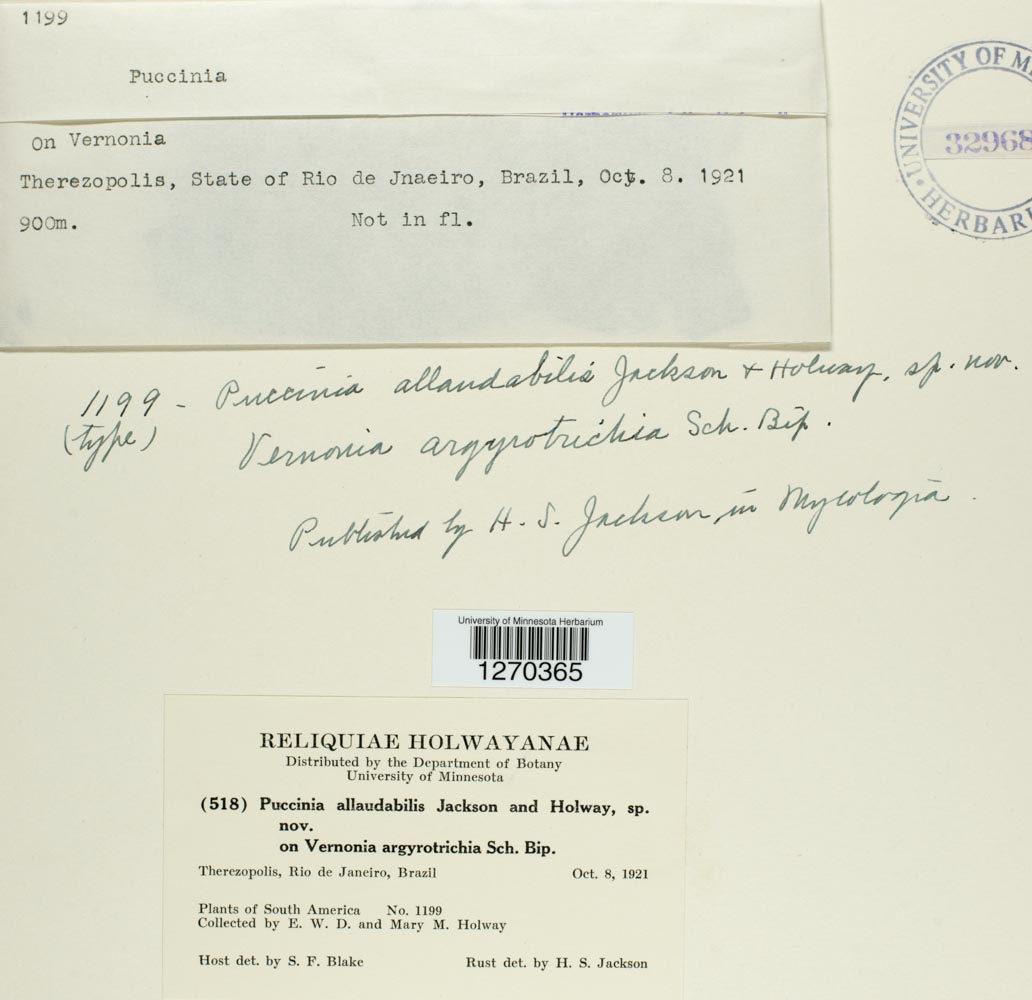 1199
Puccinia
On Vernonia
Therezopolis, State of Rio de Jnaeiro, Brazil, Oct. 8. 1921
900m. Not in fl.
UNIVERSITY OF
32968
HERBAR
1199 - Puccinia allaudabilis Jackson & Holway, sp. nov.
(type) Vernonia argyrotrichia Sch. Bip.
Published by H. S. Jackson in Mycologia.
University of Minnesota Herbarium
1270365
RELIQUIAE HOLWAYANAE
Distributed by the Department of Botany
University of Minnesota
(518) Puccinia allaudabilis Jackson and Holway, sp.
nov.
on Vernonia argyrotrichia Sch. Bip.
Therezopolis, Rio de Janeiro, Brazil Oct. 8, 1921
Plants of South America No. 1199
Collected by E. W. D. and Mary M. Holway
Host det. by S. F. Blake Rust det. by H. S. Jackson